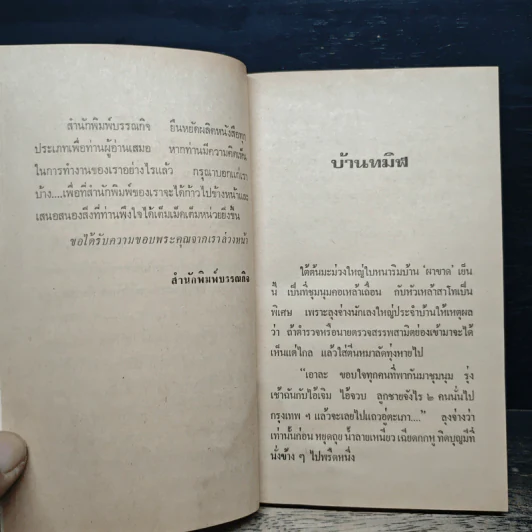 สำนักพิมพ์บรรณกิจ ยืนหยัดผลิตหนังสือทุก
ประเภทเพื่อท่านผู้อ่านเสมอ หากท่านมีความคิดเห็น
ในการทำงานของเราอย่างไรแล้ว กรุณาบอกแก่เรา
บ้าง....เพื่อที่สำนักพิมพ์ของเราจะได้ก้าวไปข้างหน้าและ
เสนอสนองสิ่งที่ท่านพึงใจได้เต็มเม็ดเต็มหน่วยยิ่งขึ้น
ขอได้รับความขอบพระคุณจากเราล่วงหน้า
สำนักพิมพ์บรรณกิจ
บ้านทมิฬ
ใต้ต้นมะม่วงใหญ่ใบหนาริมบ้าน ‘ผาขาด’ เย็น
นี้ เป็นที่ชุมนุมคอเหล้าเถื่อน กับหัวเหล้าสาโทเป็น
พิเศษ เพราะลุงจ่างนักเลงใหญ่ประจำบ้านให้เหตุผล
ว่า ถ้าตำรวจหรือนายตรวจสรรพสามิตย่องเข้ามาจะได้
เห็นแต่ไกล แล้วใส่ตีนหมาลัดทุ่งหายไป
“เอาละ ขอบใจทุกคนที่พากันมาชุมนุม รุ่ง
เช้าฉันกับไอ้เจิม ไอ้จวบ ลูกชายจังไร ๒ คนนั่นไป
กรุงเทพ ฯ แล้วจะเลยไปแถวอู่ตะเภา....” ลุงจ่างว่า
เท่านั้นก่อน หยุดถุย น้ำลายเหนียว เฉียดกกหู ทิดบุญมีที่
นั่งข้าง ๆ ไปพรืดหนึ่ง